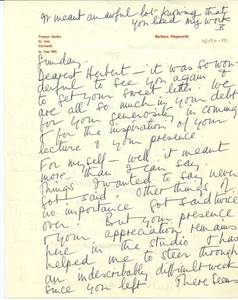 It meant an awful lot knowing that
you liked my work
B
Trewyn Studio
St. Ives
Cornwall
Barbara Hepworth
Sunday.
Dearest Herbert – it was so won-
derful to see you again &
to get your sweet letter. We
are all so much in your debt
for your generosity in coming
& for the inspiration of your
lecture & your presence.
For myself – well it meant
more than I can say.
Things I wanted to say never
got said: other things of
no importance got said twice
over! But your presence
& your appreciation remains
here in the studio & has
helped me to steer through
an indescribably difficult week
since you left. There seems